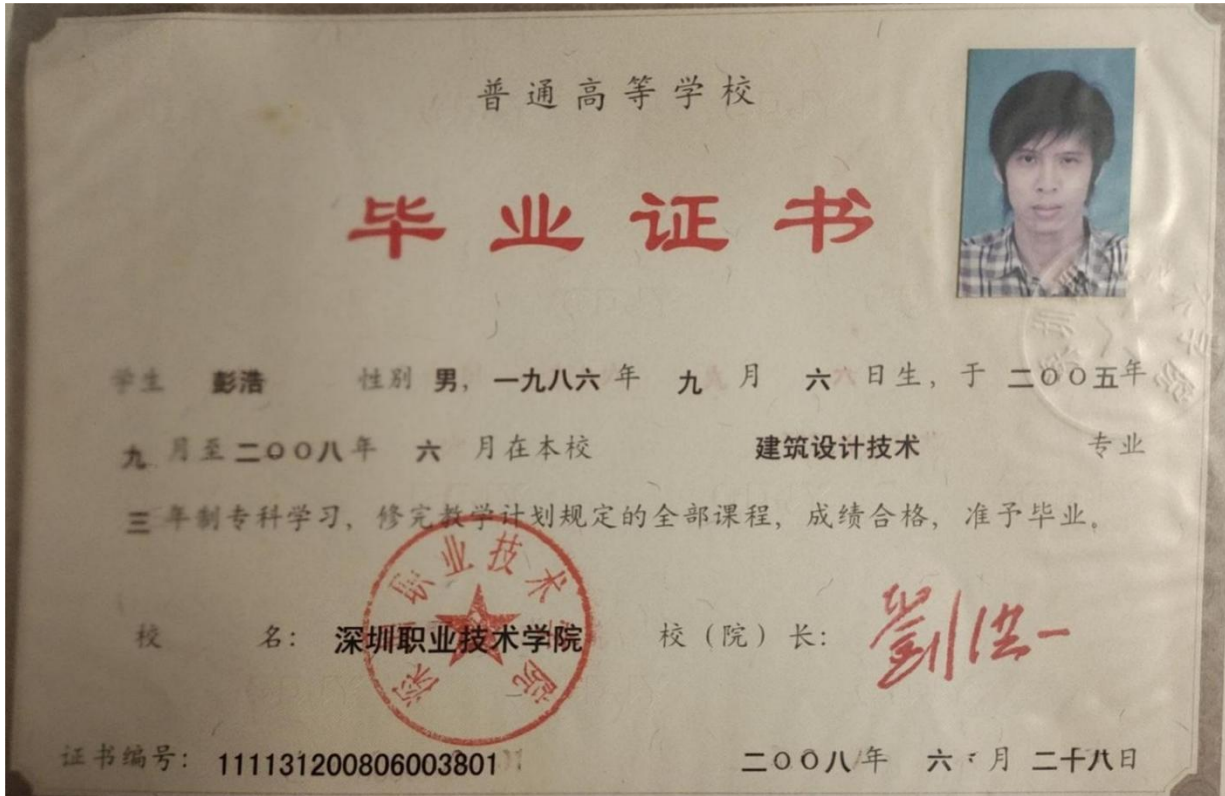 普通高等学校
毕业证书
学生 彭浩 性别 男，一九八六年 九 月 六日生，于 二〇〇五年
九 月至二〇〇八年 六 月在本校 建筑设计技术 专业
三 年制专科学习，修完教学计划规定的全部课程，成绩合格，准予毕业。
深圳职业技术学院
校 名： 深圳职业技术学院 校（院）长： 劉洪一
证书编号： 111131200806003801 二〇〇八年 六 月 二十八日